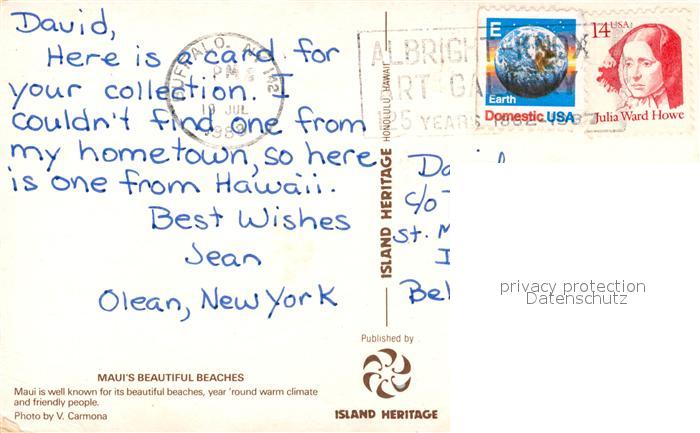 David,
Here is a card for
your collection. I
couldn't find one from
my hometown, so here
is one from Hawaii.
Best Wishes
Jean
Olean, New York
MAUI'S BEAUTIFUL BEACHES
Maui is well known for its beautiful beaches, year 'round warm climate
and friendly people.
Photo by V. Carmona
BUFFALO, NY 142
PM
19 JUL
ALBRIGHT-KNOX
ART GALLERY
125 YEARS 1862-1987
E
Earth
Domestic USA
14 USA
Julia Ward Howe
ISLAND HERITAGE HONOLULU, HAWAII
c/o
St. M
Bel
privacy protection
Datenschutz
Published by
ISLAND HERITAGE